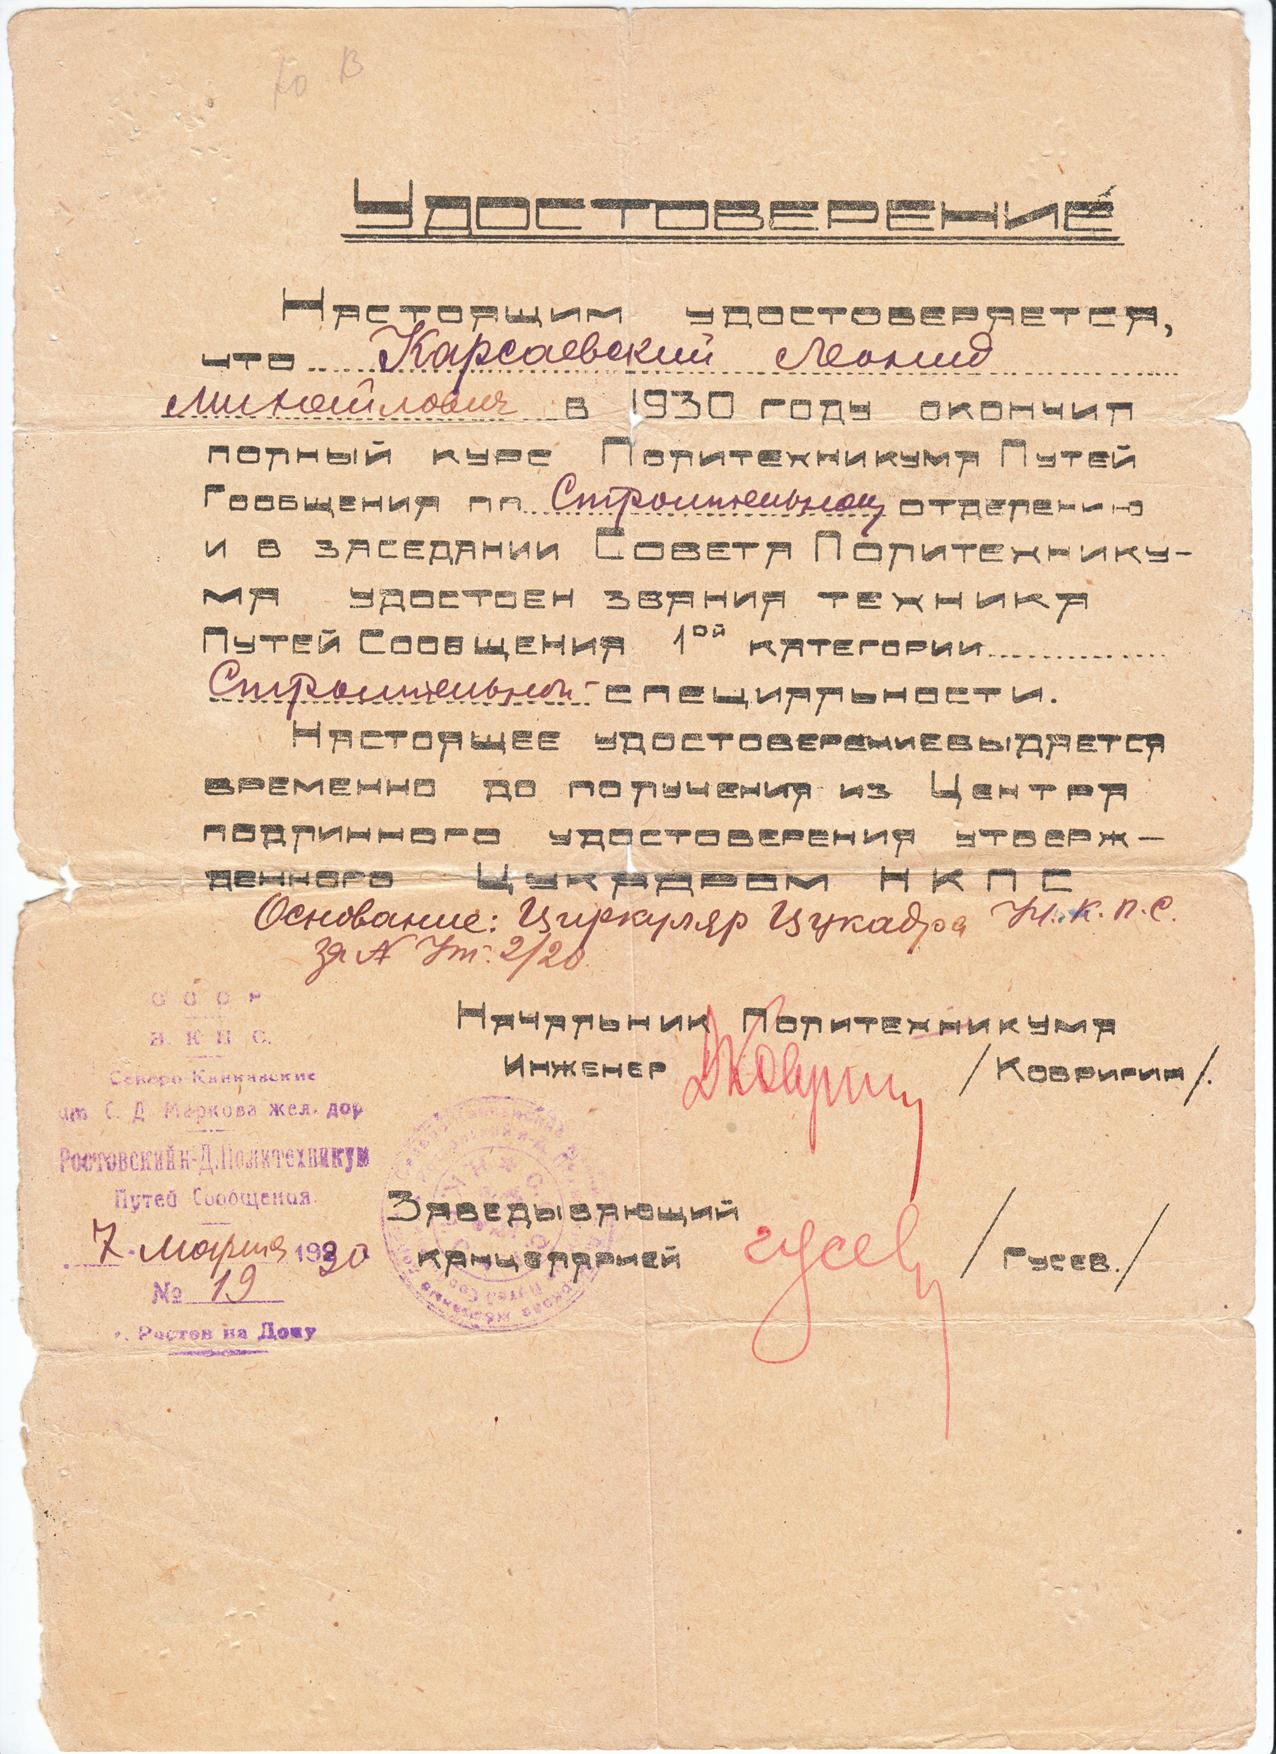 Удостоверение
Настоящим удостоверяется,
что Карсаевский Леонид
Михайлович в 1930 году окончил
полный курс Политехникума Путей
Сообщения по Строительному отделению
и в заседании Совета Политехнику-
ма удостоен звания техника
Путей Сообщения 1ой категории
Строительной специальности.
Настоящее удостоверение выдается
временно до получения из Центра
подлинного удостоверения утверж-
денного Цукадром НКПС
Основание: Циркуляр Цукадра Н.К.П.С.
за № Ут. 2/20
СССР
Н.К.П.С.
Северо-Кавказские
им. С. Д. Маркова жел. дор
Ростовский н-Д. Политехникум
Путей Сообщения
7 Марта 1930
№ 19
г. Ростов на Дону
Начальник Политехникума
Инженер /Ковригин/.
Заведывающий
канцелярией Гусев /Гусев./